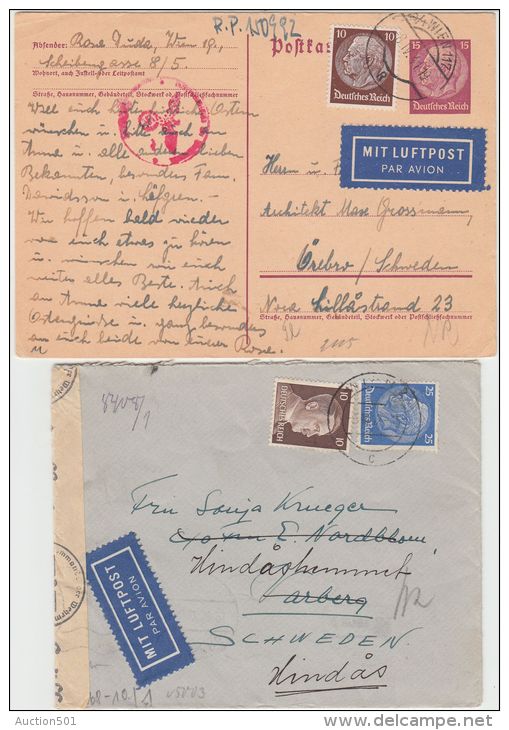 R.P. 150982
Absender: Rosa Duda, Wien 19.,
Scheibengasse 8/5.
Wohnort, auch Zustell- oder Leitpostamt
Straße, Hausnummer, Gebäudeteil, Stockwerk od. Postschließfachnummer
Postkar
10 10
Deutsches Reich
WIEN 117
15 15
Deutsches Reich
MIT LUFTPOST
PAR AVION
Will euch Ostern
wünschen u. bitte auch an
Anna u. alle andern lieben
Bekannten, besonders Fam.
Davidsson u. Löfgren. –
Wir hoffen bald wieder
von euch etwas zu hören
u. wünschen wir euch
weiters alles Beste. Auch
an Anna viele herzliche
Ostergrüsse u. ganz besonders
an euch beide von eurer Rosa.
Herrn u. F
Architekt Max Grossmann,
Örebro / Schweden
Nora Lillåstrand 23
Straße, Hausnummer, Gebäudeteil, Stockwerk oder Postschließfachnummer
10 10
DEUTSCHES REICH
25 25
Deutsches Reich
c
Frau Sonja Krueger
E. Nordblom
Hindåshemmet
Varberg
SCHWEDEN
Hindås
MIT LUFTPOST
PAR AVION
Auction501
www.delcampe.net